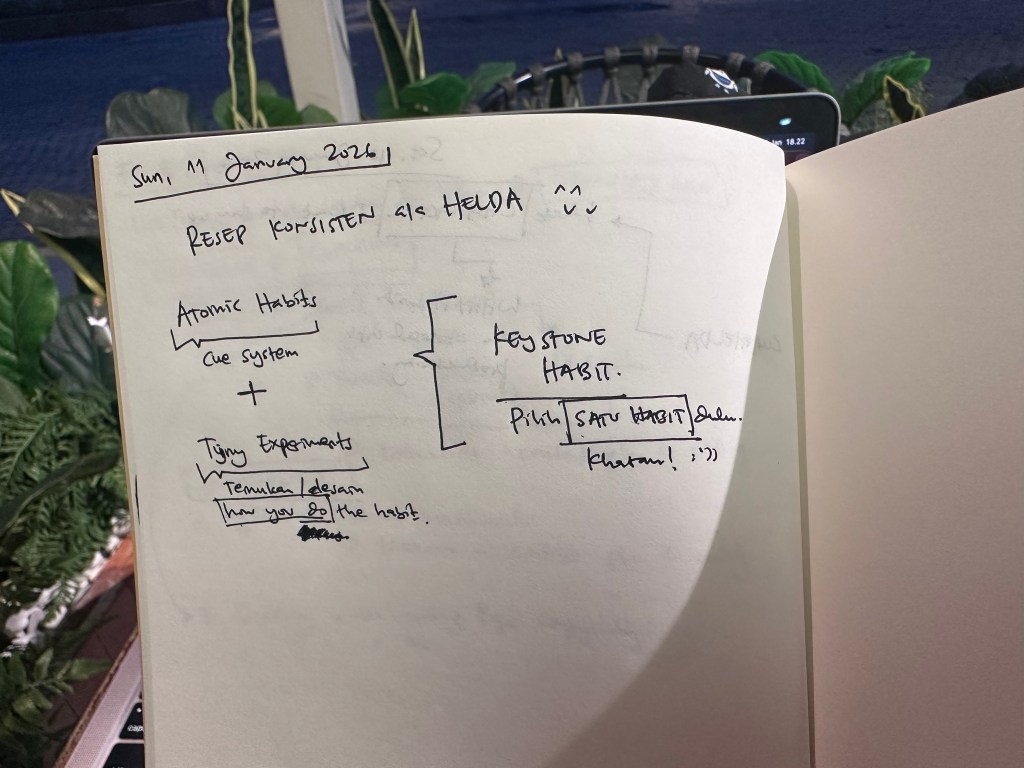 Sun, 11 January 2026
RESEP KONSISTEN ala HELDA ^^
Atomic Habits
Cue system
+
Tiny Experiments
Temukan / desain
how you do the habit.
KEYSTONE
HABIT.
Pilih SATU HABIT dulu.
Khatam! ;'))
18.22